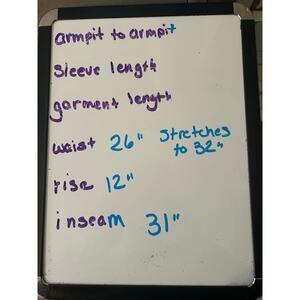 armpit to armpit
sleeve length
garment length
waist 26" stretches to 32"
rise 12"
inseam 31"